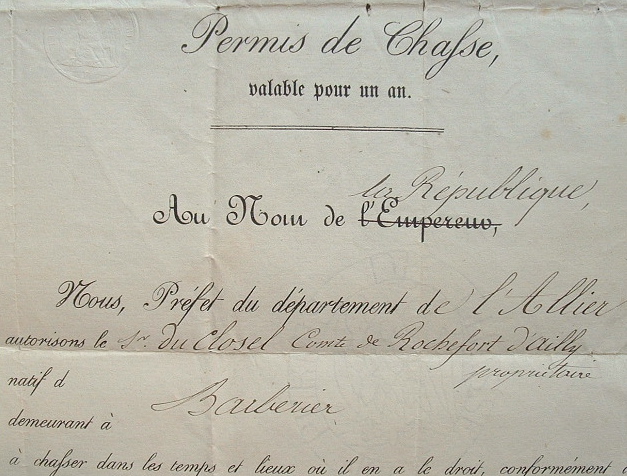 Permis de Chasse,
valable pour un an.
la République,
Au Nom de l'Empereur,
Nous, Préfet du département de l'Allier
autorisons le Sr. du Closel Comte de Rochefort d'ailly
propriétaire
natif d
Barberier
demeurant à
à chasser dans les temps et lieux où il en a le droit, conformément